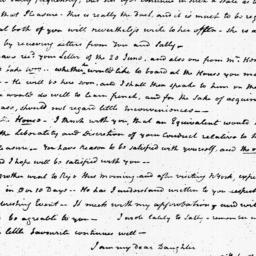 that Pleasure - this is really the Duel, and it is must to be reg
at both of you will nevertheless write to her often. she is a
by receiving letters from You and Sally
have recd your Letter of the 20 June, and also one from Mr
whether would like to board at the House you me
He will be here soon, and I shall then speak to him on the
would do well to learn French, and for the Sake of acquir
should not regard little Inconveniences
House - I think with you, that an Equivalent would
the liberality and Discretion of your Conduct relative to t
You have reason to be satisfied with yourself, and the
and I hope will be satisfied with you
brother went to Rye this Morning and after visiting N York, expec
in 8 or 10 Days - He has I understand written to you respect
Event - It meets with my approbation, and wi
be agreeable to you - I wrote lately to Sally - remember m
little favourite continues well
I am my dear Daughter